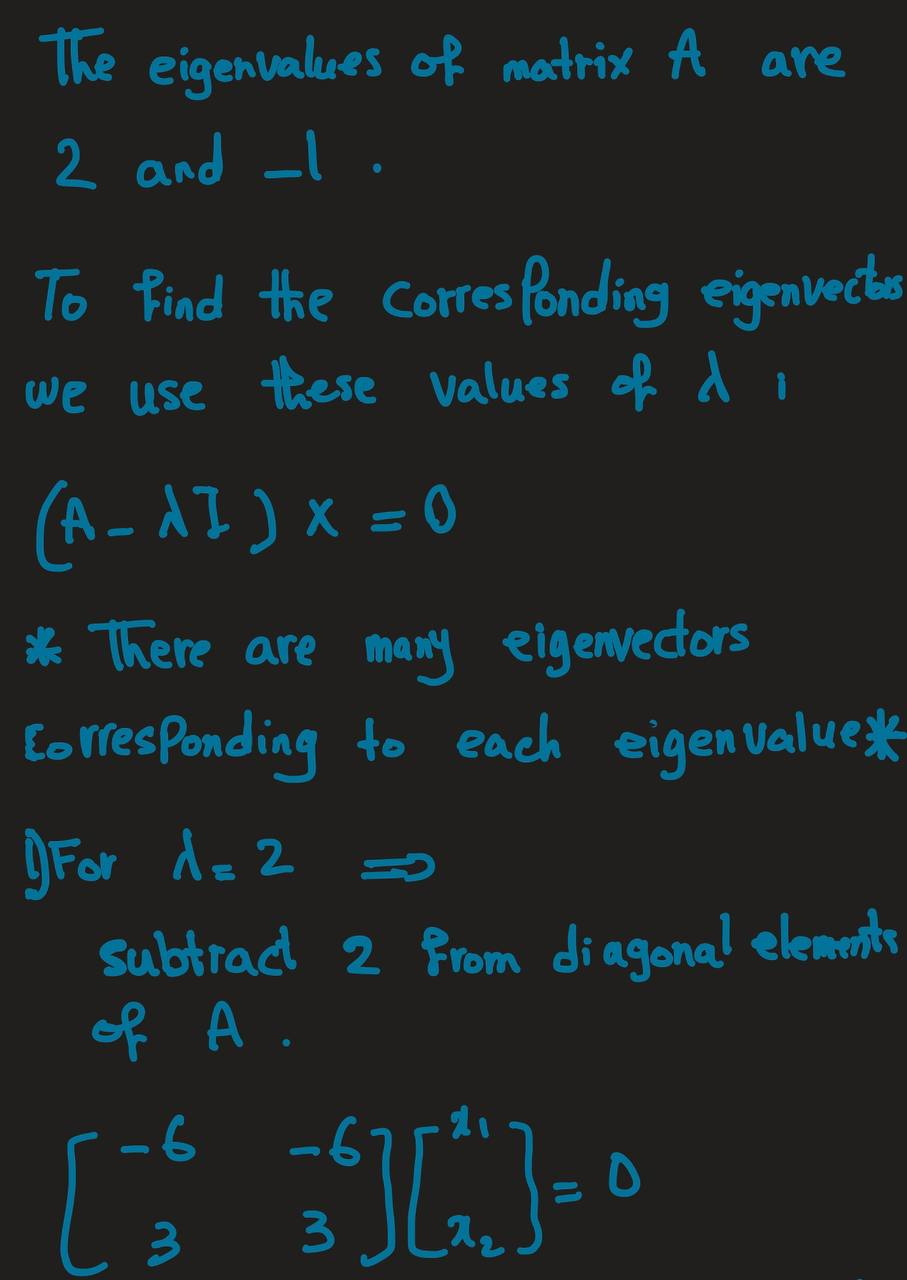 The eigenvalues of matrix A are
2 and -1 .
To find the corresponding eigenvectors
we use these values of λ :
(A - λI) x = 0
* There are many eigenvectors
corresponding to each eigenvalue *
1) For λ = 2 ⇒
subtract 2 from diagonal elements
of A .
[ -6 -6 ] [ x₁ ] = 0
[ 3 3 ] [ x₂ ]